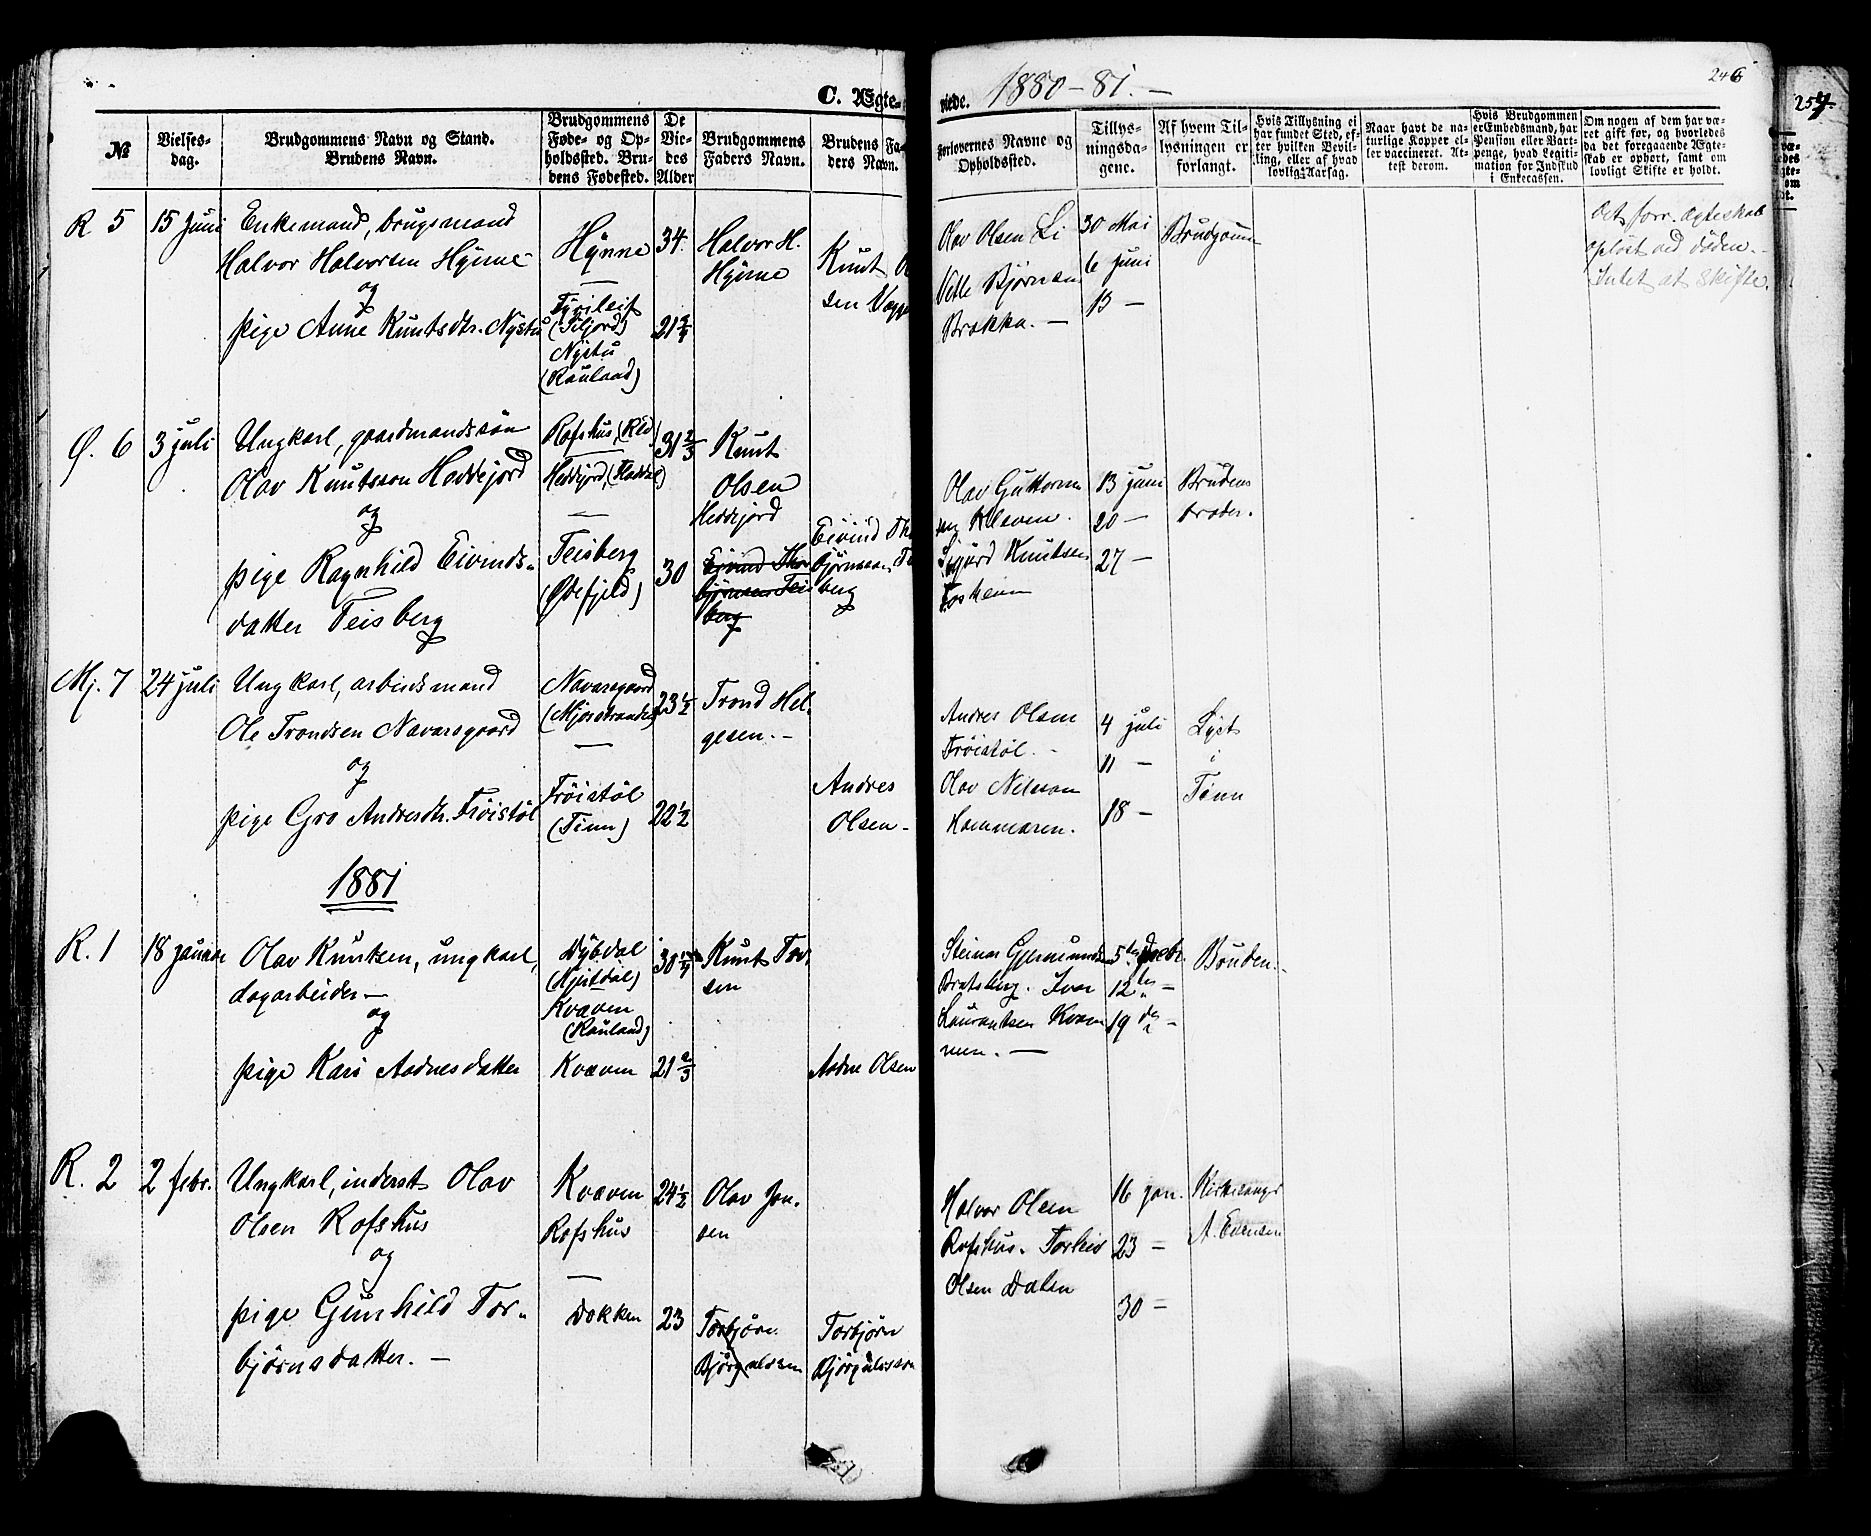 C. Ægte-
viede. 1880-81. -
246
257
№
Vielses-
dag.
Brudgommens Navn og Stand.
Brudens Navn.
Brudgommens
Føde- og Op-
holdssted. Bru-
dens Fødested.
De
Vie-
des
Alder
Brudgommens
Faders Navn.
Brudens Fa-
ders Navn.
Forlovernes Navne og
Opholdssted.
Tillys-
ningsda-
gene.
Af hvem Til-
lysningen er
forlangt.
Hvis Tillysning ei
har fundet Sted, ef-
ter hvilken Bevil-
ling, eller af hvad
lovlig Aarsag.
Naar havt de na-
turlige Kopper el-
ler vaccineret. At-
test derom.
Hvis Brudgommen
er Embedsmand, har
Pension eller Vart-
penge, hvad Legiti-
mation for Indskud
i Enkecassen.
Om nogen af dem har væ-
ret gift før, og hvorledes
da det foregaaende Ægte-
skab er ophørt, samt om
lovligt Skifte er holdt.
R 5
15 Juni
Enkemand, brugsmand
Halvor Halvorsen Hynne
og
pige Anne Knutsdtr. Nystu
Hynne
Tyrileit
(Siljord)
Nystu
(Rauland)
34.
21
Halvor H.
Hynne
Knut O
sen Vagge
Olav Olsen Li
Vetle Bjørnsen
Brokka. -
30 Mai
6 Juni
13 -
Brudgom
Det forr. ægteskab
opløst ved døden. -
Intet at skifte.
Ø. 6
3 juli
Ungkarl, gaardmandssøn
Olav Knutsson Heddejord
og
pige Ragnhild Eivinds-
datter Teisberg
Rofshus,
Heddejord, (Hoddal)
Teisberg
(Øvefjeld)
31 2/3
30
Knut
Olsen
Heddejord
Eivind Thor
bjørnsen Teis
berg
Eivind Th
bjørnsen, Te
berg
Olav Guttorm
sen Kleven.
Sigurd Knutsen
Foskeim
13 juni
20 -
27 -
Brudens
broder.
Mj. 7
24 juli
Ungkarl, arbeidsmand
Ole Trondsen Navarsgaard
og
pige Gro Andresdtr. Frøistøl
Navarsgaard
(Mjøsstranden)
Frøistøl
(Tinn)
23 1/2
22 1/2
Trond Hel-
gesen. -
Andres
Olsen -
Andres Olsen
Frøistøl. -
Olav Nilsson
Hammaren.
4 juli
11 -
18 -
Lyst
i
Tinn
1881
R. 1
18 januar
Olav Knutsen, ungkarl,
dagarbeider -
og
pige Kari Aadnesdatter
Dybdal
(Hjertdal)
Kvæven
(Rauland)
Kvæven
30
21 2/3
Knut Tor-
sen
Aadne Olsen
Steinar Gjermundsen
Bratsberg. Ivar
Laurantsen Kvam
men. -
5te Decbr.
12te -
19de -
Bruden. -
R. 2
2 febr.
Ungkarl, inderst Olav
Olsen Rofshus
og
pige Gunhild Tor-
bjørnsdatter. -
Kvæven
Rofshus
Dokken
24 1/2
23
Olav Jon-
sen
Torbjørn
Bjørgulvsen
Torbjørn
Bjørgulvsson
Halvor Olsen
Rofshus. Torleiv
Olsen Dalen
16 jan.
23 -
30 -
Kirkesanger
A. Evensen